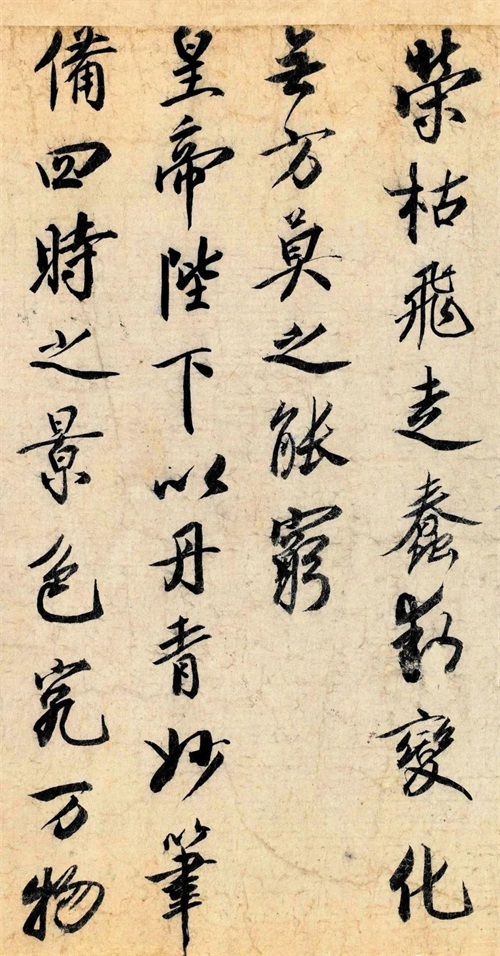 榮枯飛走蠢動變化
無方莫之能窮
皇帝陛下以丹青妙筆
備四時之景色究万物